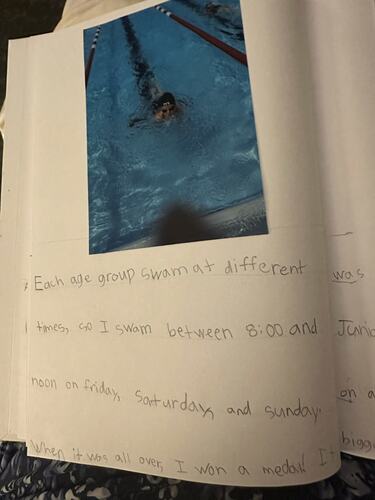 Each age group swam at different
times, so I swam between 8:00 and
noon on friday, Saturday, and sunday.
When it was all over, I won a medal! It
was
on